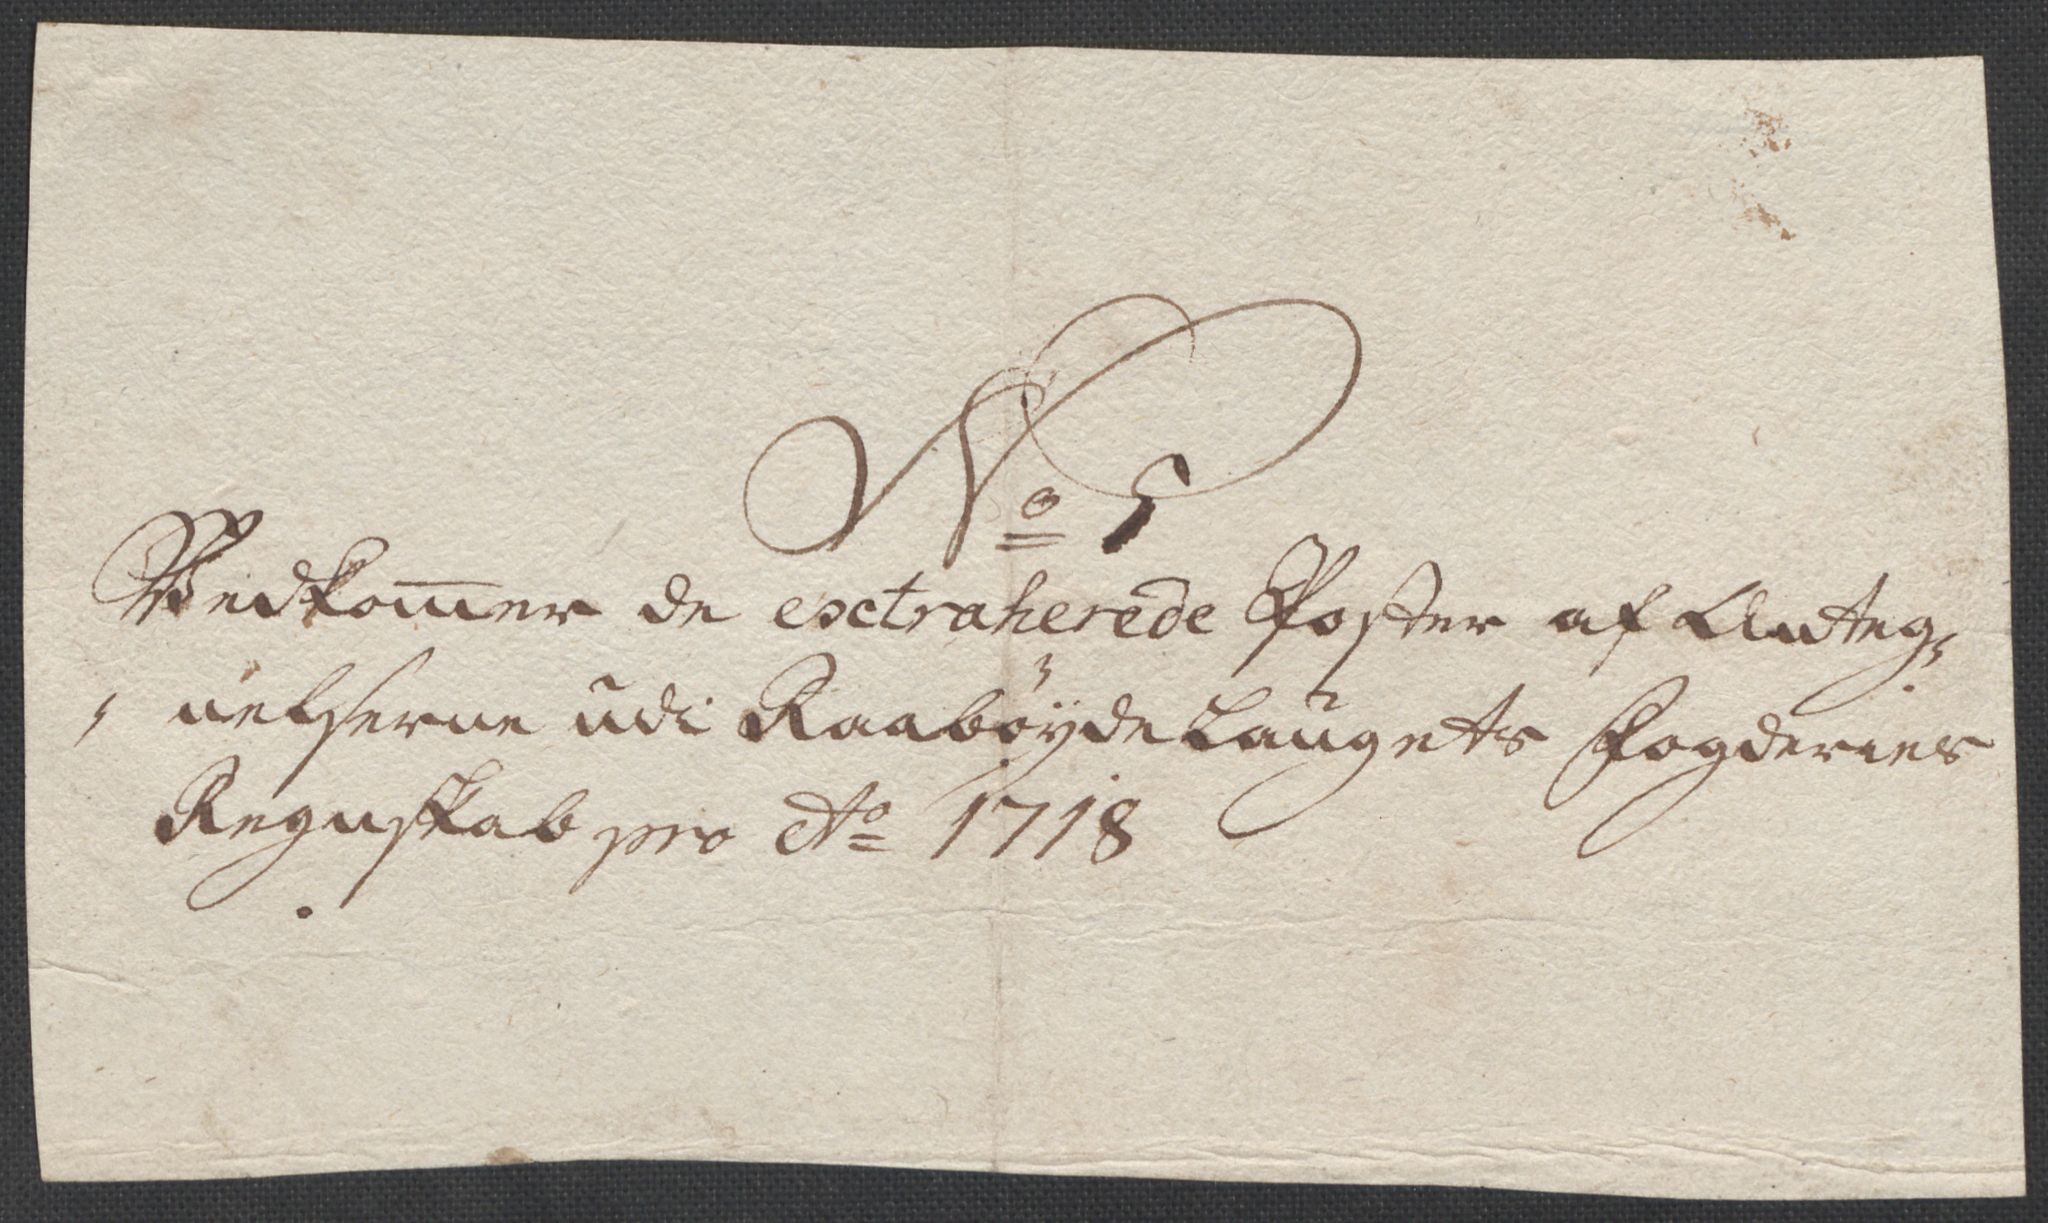 No 5
Vedkommer de extraherede Poster af Anteg,
, nelserne udi Raabøyde Laugets Fogderies
Regnskab pro Ao 1718